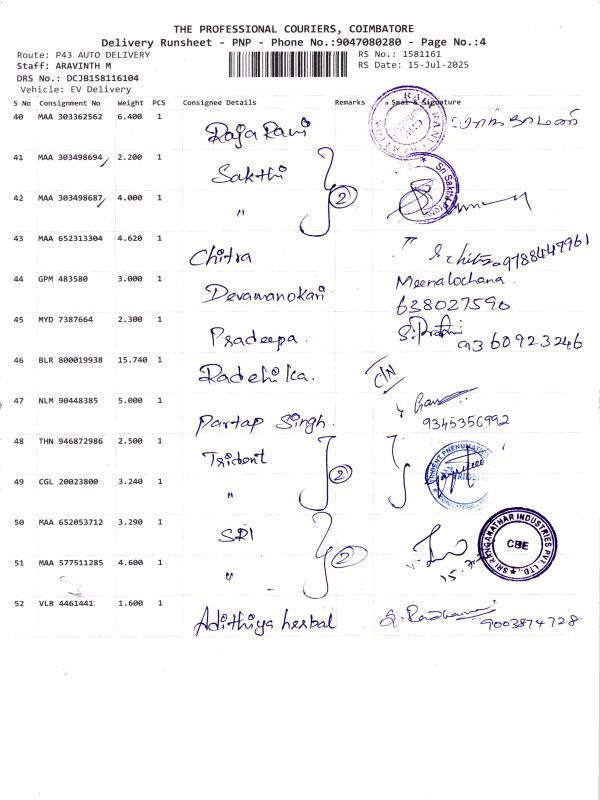 THE PROFESSIONAL COURIERS, COIMBATORE
Delivery Runsheet - PNP - Phone No.:9047080280 - Page No.:4
Route: P43 AUTO DELIVERY RS No.: 1581161
Staff: ARAVINTH M RS Date: 15-Jul-2025
DRS No.: DCJB158116104
Vehicle: EV Delivery
S No Consignment No Weight PCS Consignee Details Remarks Seal & Signature
40 MAA 303362562 6.400 1 Raja Rani
41 MAA 303498694 2.200 1 Sakthi
42 MAA 303498687 4.000 1 " 2
43 MAA 652313304 4.620 1 Chitra 9788447961
44 GPM 483580 3.000 1 Devamanokari Meenalochana 638027590
45 MYD 7387664 2.300 1 Pradeepa. 9360923246
46 BLR 800019938 15.740 1 Radehika. C/N
47 NLM 90448385 5.000 1 Partap Singh. 9345356992
48 THN 946872986 2.500 1 Trident
49 CGL 20023800 3.240 1 " 2
50 MAA 652053712 3.290 1 SRI SRI RANGANATHAR INDUSTRIES PVT. LTD. CBE
51 MAA 577511285 4.600 1 " 2
52 VLR 4461441 1.600 1 Adithiya herbal 9003874728